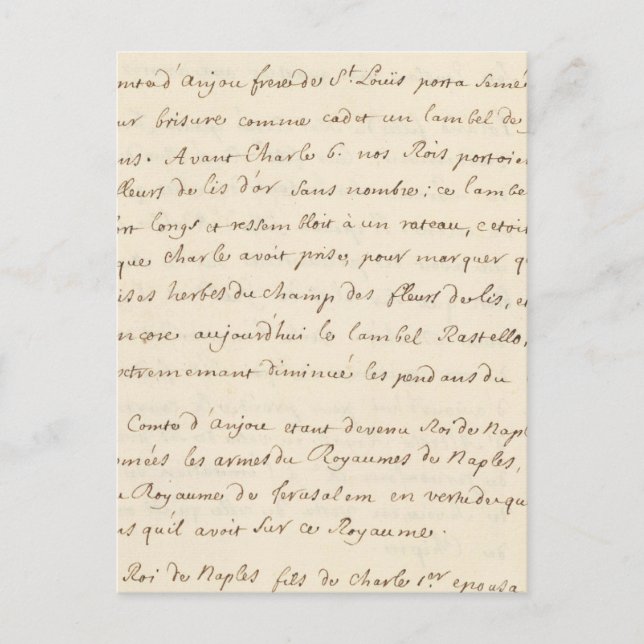 omte d'Anjou frere de St. Loüis porta semé
ur brisure comme cadet un lambel de
ns. Avant Charle 6. nos Rois portoie
lleurs de lis d'or sans nombre; ce lambe
ort longs et ressembloit à un rateau, c'etoit
que Charle avoit prise, pour marquer q
ises herbes du champ des fleurs de lis, e
ncore aujourd'hui le lambel Rastello,
xtrememant diminué les pendans du
Comte d'Anjou etant devenu Roi de Napl
nées les armes du Royaumes de Naples,
u Royaume de Jerusalem en vertu de qu
ns qu'il avoit sur ce Royaume.
Roi de Naples fils de Charle 1.er epousa